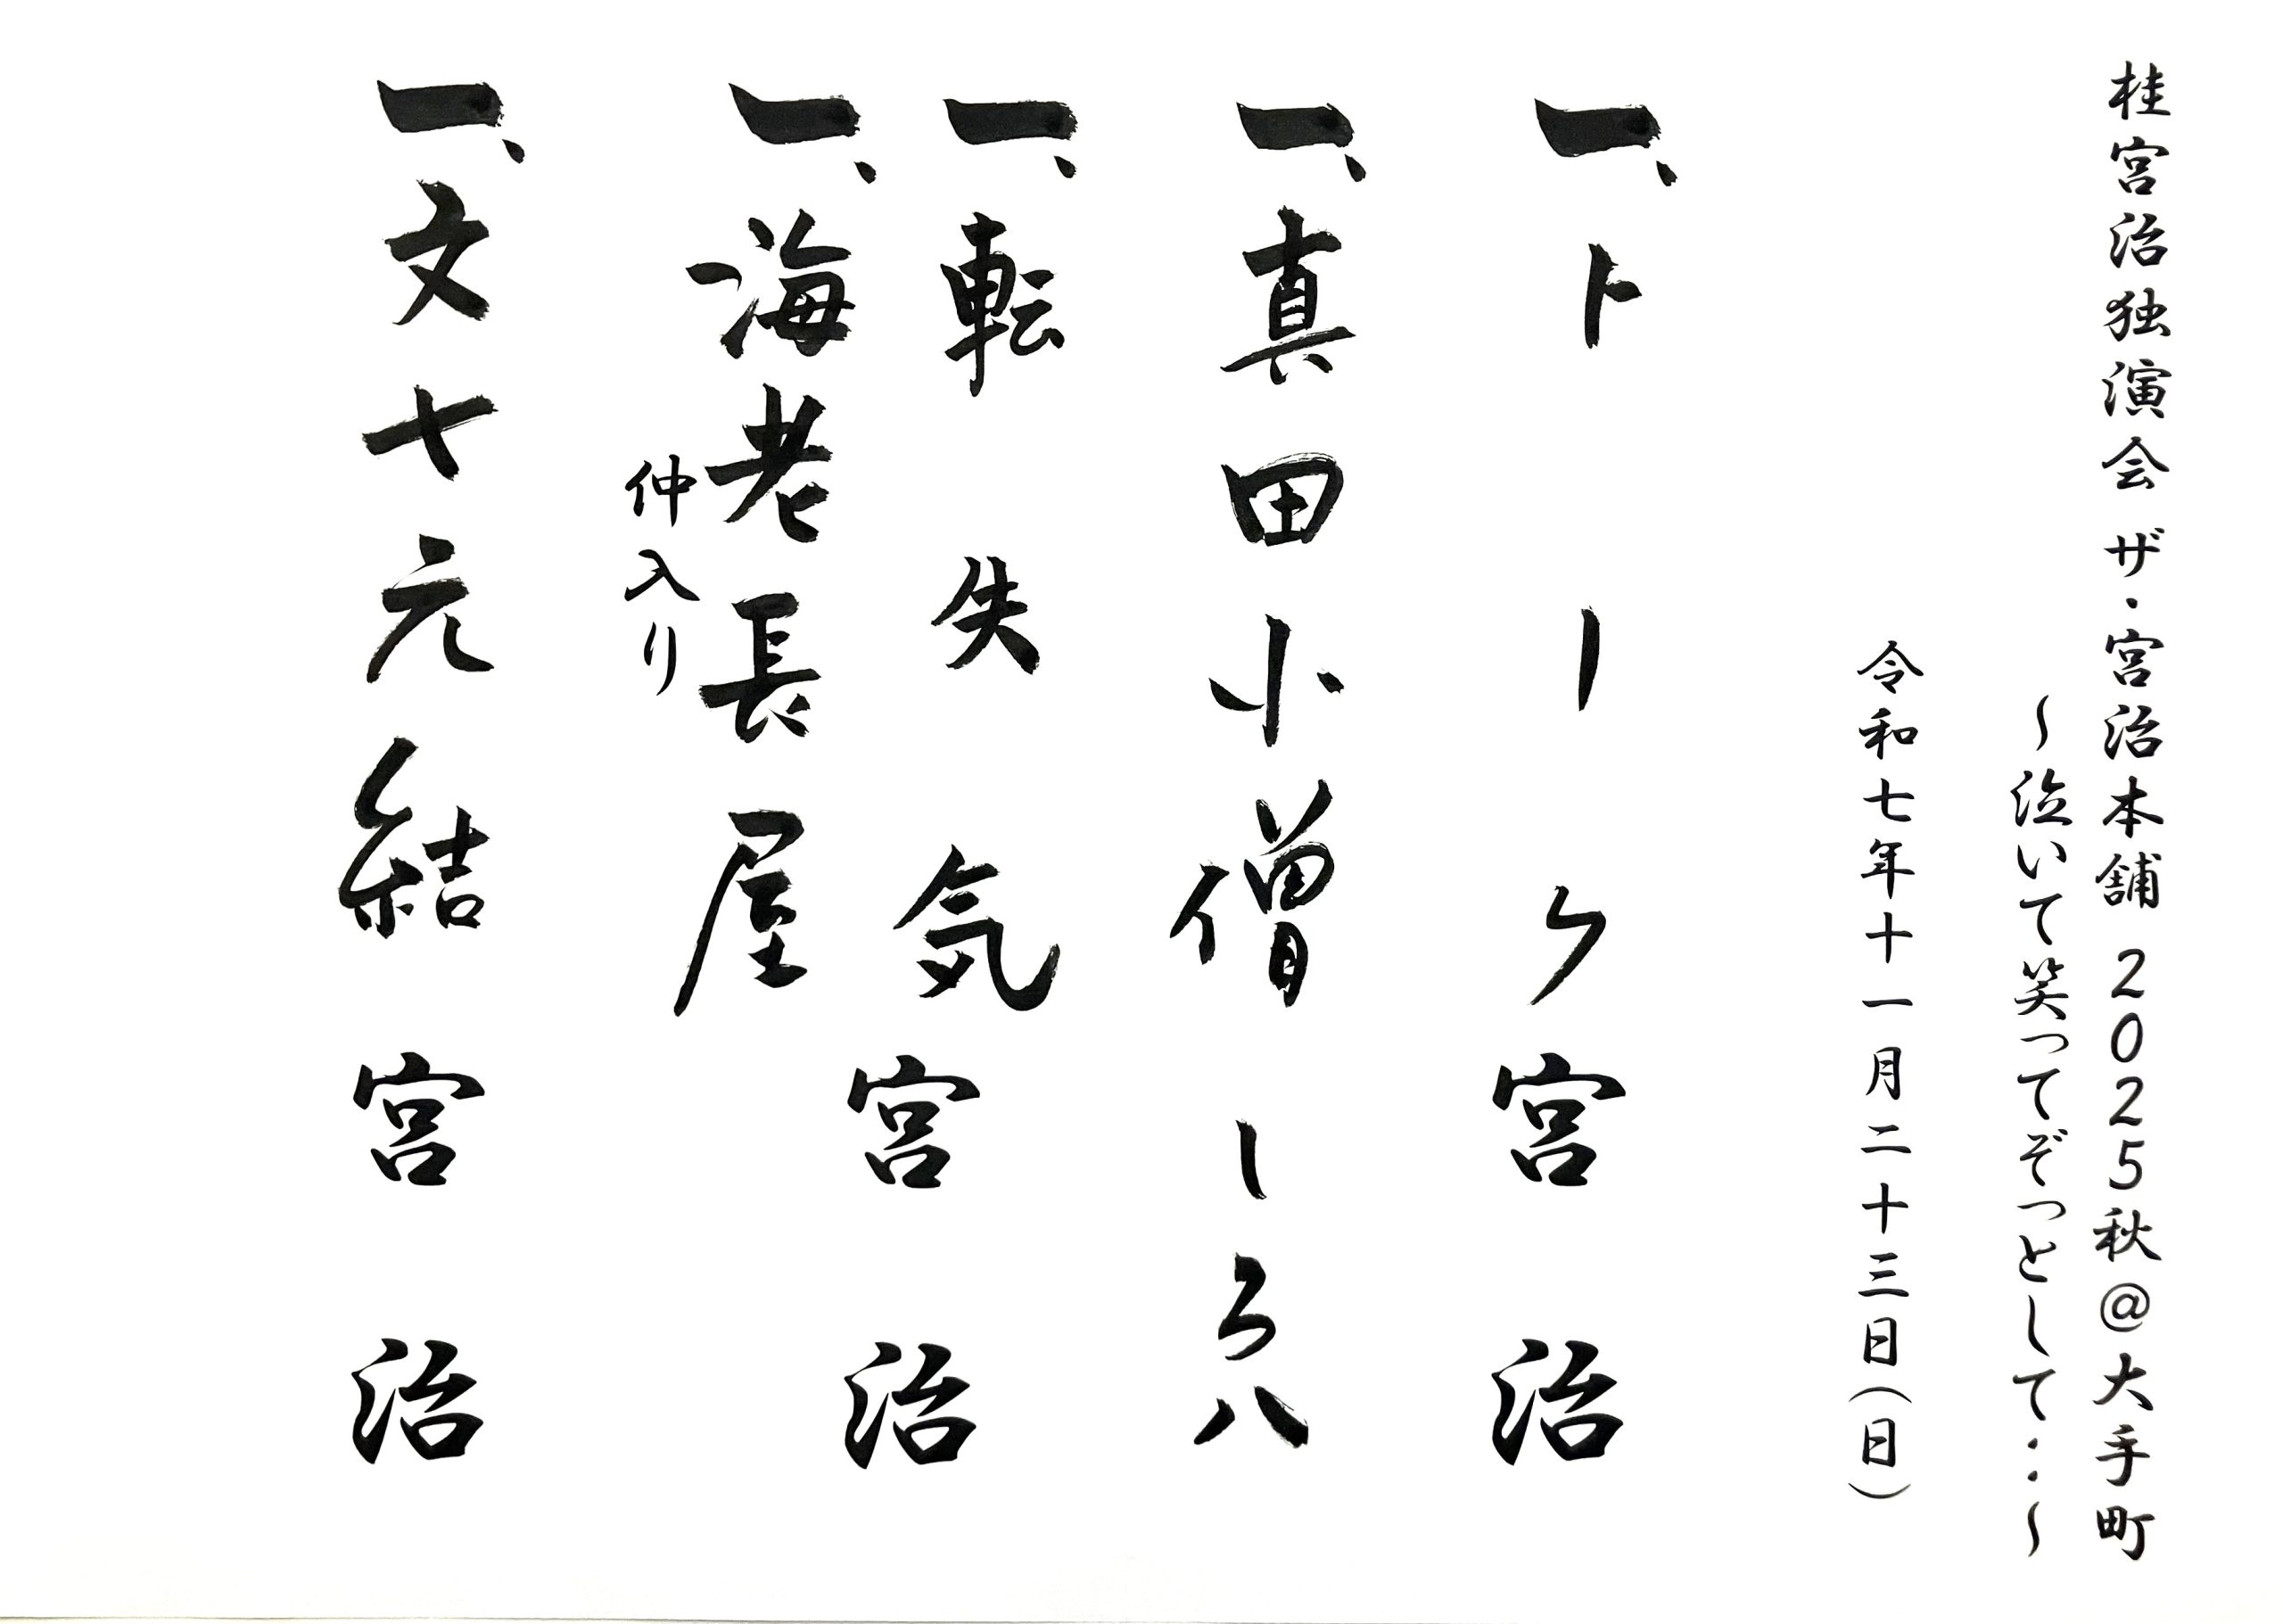 桂宮治独演会 ザ・宮治本舗 2025秋@大手町
~泣いて笑ってぞっとして…~
令和七年十一月二十三日(日)
一、トーク 宮治
一、真田小僧 しろ八
一、転失気
一、海老長屋
宮治
仲入り
一、文七元結 宮治